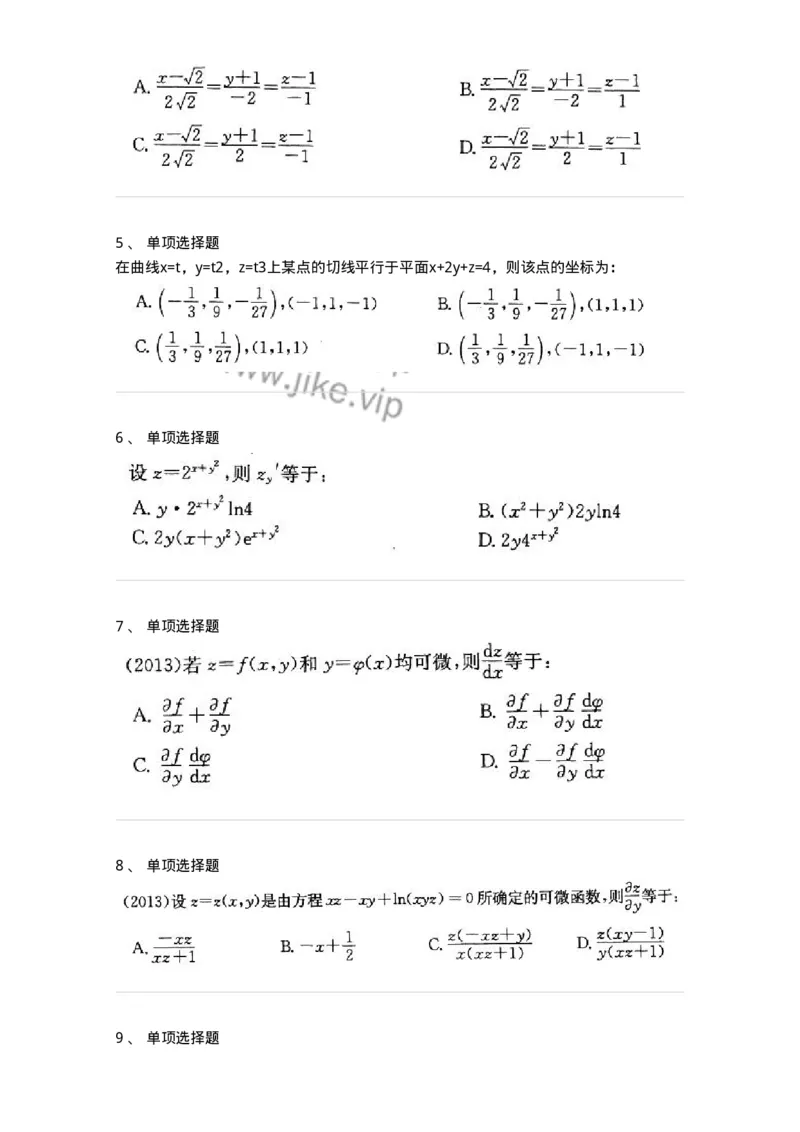 A. \frac{x-\sqrt{2}}{2\sqrt{2}}=\frac{y+1}{-2}=\frac{z-1}{-1} B. \frac{x-\sqrt{2}}{2\sqrt{2}}=\frac{y+1}{-2}=\frac{z-1}{1}
C. \frac{x-\sqrt{2}}{2\sqrt{2}}=\frac{y+1}{2}=\frac{z-1}{-1} D. \frac{x-\sqrt{2}}{2\sqrt{2}}=\frac{y+1}{2}=\frac{z-1}{1}
5 、 单项选择题
在曲线x=t，y=t2，z=t3上某点的切线平行于平面x+2y+z=4，则该点的坐标为：
A. (-\frac{1}{3},\frac{1}{9},-\frac{1}{27}),(-1,1,-1) B. (-\frac{1}{3},\frac{1}{9},-\frac{1}{27}),(1,1,1)
C. (\frac{1}{3},\frac{1}{9},\frac{1}{27}),(1,1,1) D. (\frac{1}{3},\frac{1}{9},\frac{1}{27}),(-1,1,-1)
www.jike.vip
6 、 单项选择题
设 z=2^{x+y^2},则 z_y'等于:
A. y·2^{x+y^2}ln4 B. (x^2+y^2)2yln4
C. 2y(x+y^2)e^{x+y^2} D. 2y4^{x+y^2}
7 、 单项选择题
(2013)若 z=f(x,y)和 y=φ(x)均可微,则\frac{dz}{dx}等于:
A. \frac{∂f}{∂x}+\frac{∂f}{∂y} B. \frac{∂f}{∂x}+\frac{∂f}{∂y}\frac{dφ}{dx}
C. \frac{∂f}{∂y}\frac{dφ}{dx} D. \frac{∂f}{∂x}-\frac{∂f}{∂y}\frac{dφ}{dx}
8 、 单项选择题
(2013)设 z=z(x,y)是由方程 xz-xy+ln(xyz)=0所确定的可微函数,则\frac{∂z}{∂y}等于:
A. \frac{-xz}{xz+1} B. -x+\frac{1}{2} C. \frac{z(-xz+y)}{x(xz+1)} D. \frac{z(xy-1)}{y(xz+1)}
9 、 单项选择题